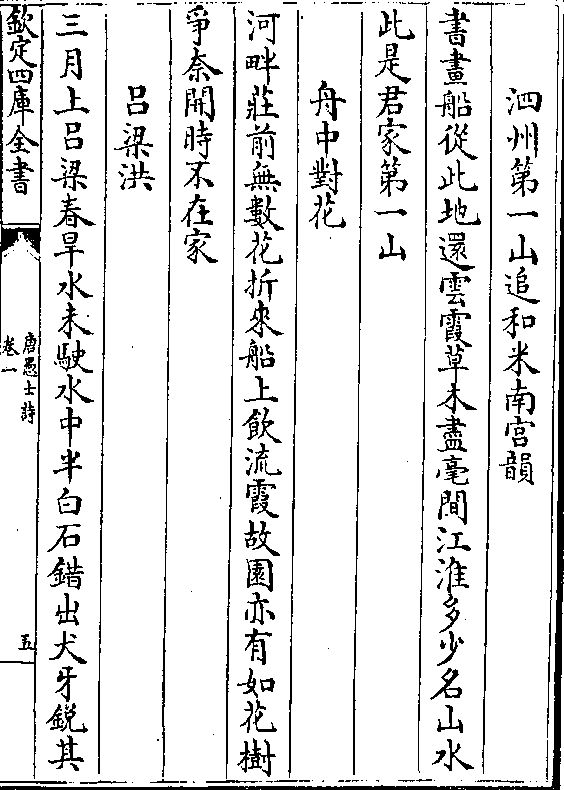 泗州第一山追和米南宫韻
書畫船從此地還雲霞草木盡毫間江淮多少名山水
此是君家第一山
舟中對花
河畔莊前無數花折來船上飲流霞故園亦有如花樹
爭奈開時不在家
吕梁洪
三月上吕梁春旱水未駛水中半白石錯出犬牙銳其
欽定四庫全書
唐愚士詩
卷一
五